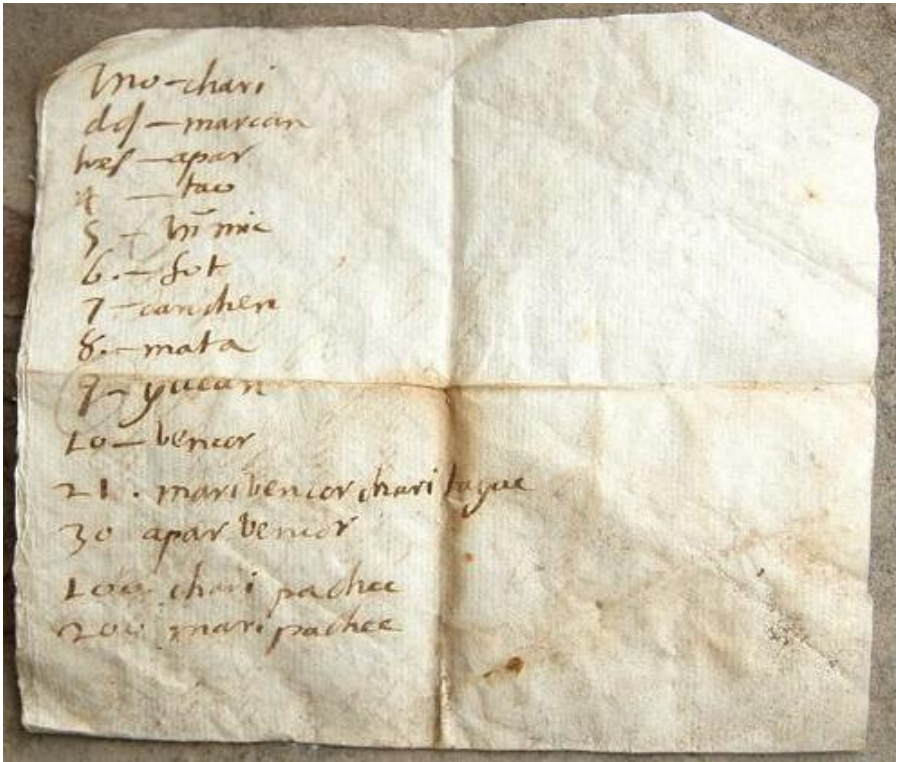 uno-chari
dos-marcan
tres-apar
4-tau
5-himic
6.-sut
7-canchen
8.-mata
9-yucan
10-bencor
21. maribencor chari tayue
30 apar bencor
100. chari pachac
200 mari pachac